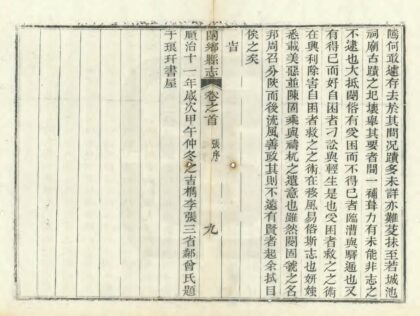 隱何敢遽存去於其間况蹟多未詳亦難妄抹至若城池
祠廟古蹟之圮壞舉其要者間一補葺力有未能非志之
不逮也大抵閿俗有受困而不得已者臨漕與驛遞也又
有得已而好自困者刁訟與輕生是也受困者救之之術
在興利除害自困者救之之術在移風易俗斯志也妍媸
悉載美惡並陳閿乘與禱杌之遺意也雖然閿固號之名
邦周召分陝而後流風善政其則不遠有賢者起余拭目
俟之矣
旹
閿鄉縣志 卷之首 張序 九
順治十一年歲次甲午仲冬之吉檇李張三省鄰曾氏題
于琅玕書屋